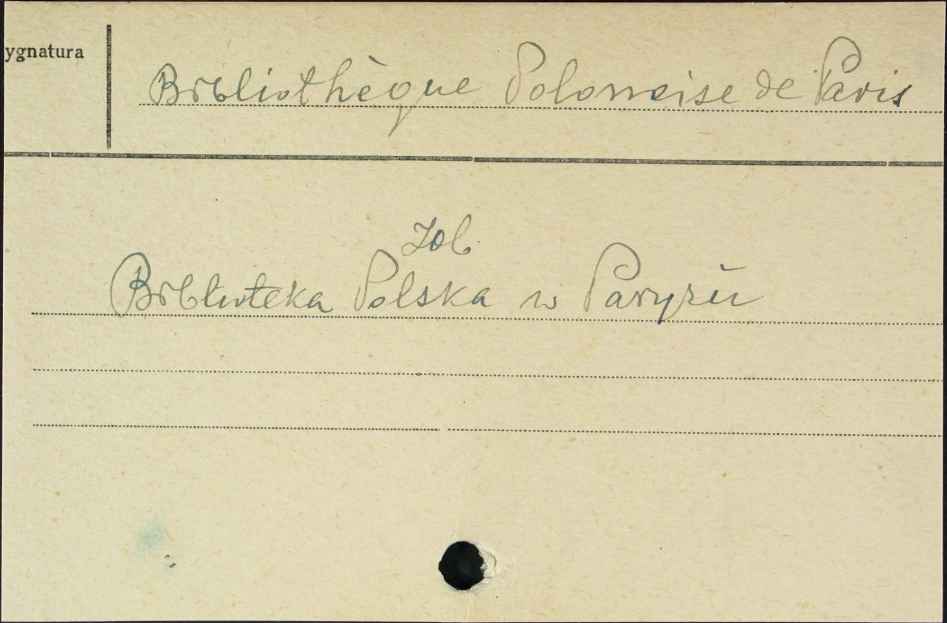 ygnatura
Bibliothèque Polonaise de Paris
Zob.
Biblioteka Polska w Paryżu